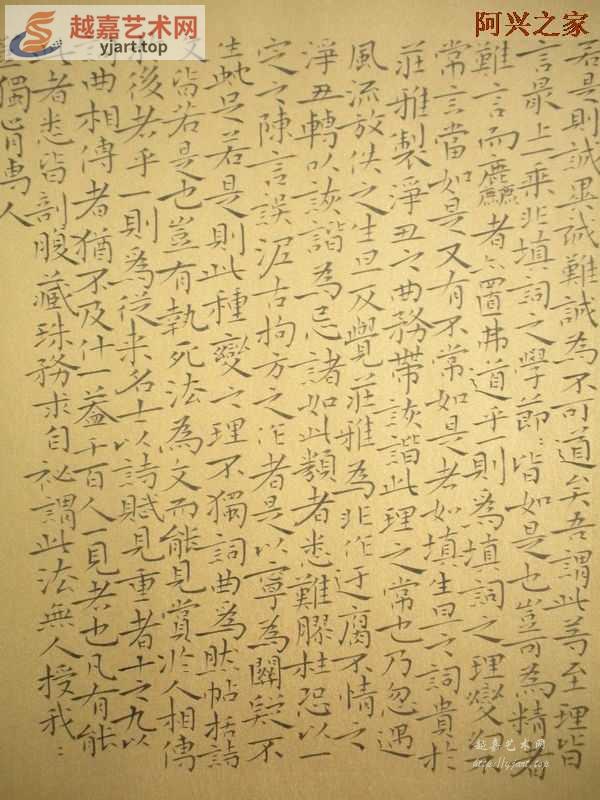 越嘉艺术网
yjart.top
阿兴之家
若是則誠墨誠難誠為不可道矣吾謂此等至理皆
言最上一乘非填詞之學節〻皆如是也豈可為精者
難言而麤者亦置弗道乎一則為填詞之理變幻不
常言當如是又有不常如是者如填生旦之詞貴於
莊雅製淨丑之曲務帶詼諧此理之常也乃忽遇
風流放佚之生旦反覺莊雅為非作迂腐不情之
淨丑轉以詼諧為忌諸如此類者悉難膠柱恐以一
定之陳言誤泥古拘方之作者是以寧為闕疑不
生蛇足若是則此種變之理不獨詞曲為然帖括詩
文皆若是也豈有執死法為文而能見賞於人相傳
於後者乎一則為從来名士以詩賦見重者十之九以
詞曲相傳者猶不及什一蓋千百人一見者也凡有能
此者悉皆剖腹藏珠務求自祕謂此法無人授我〻
豈獨肯專人
越嘉艺术网
http://yjart.top